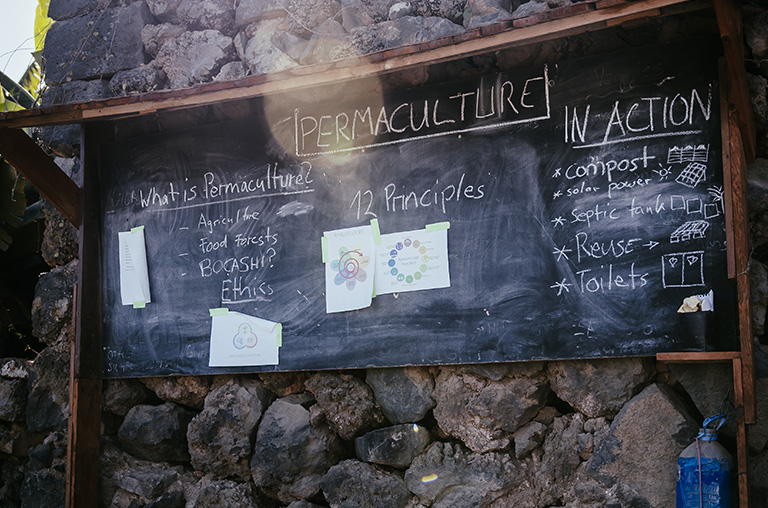 PERMACULTURE
IN ACTION
What is Permaculture?
- Agriculture
- Food Forests
- BOCASHI?
Ethics
12 Principles
* compost
* solar power
* septic tank
* Reuse →
* Toilets